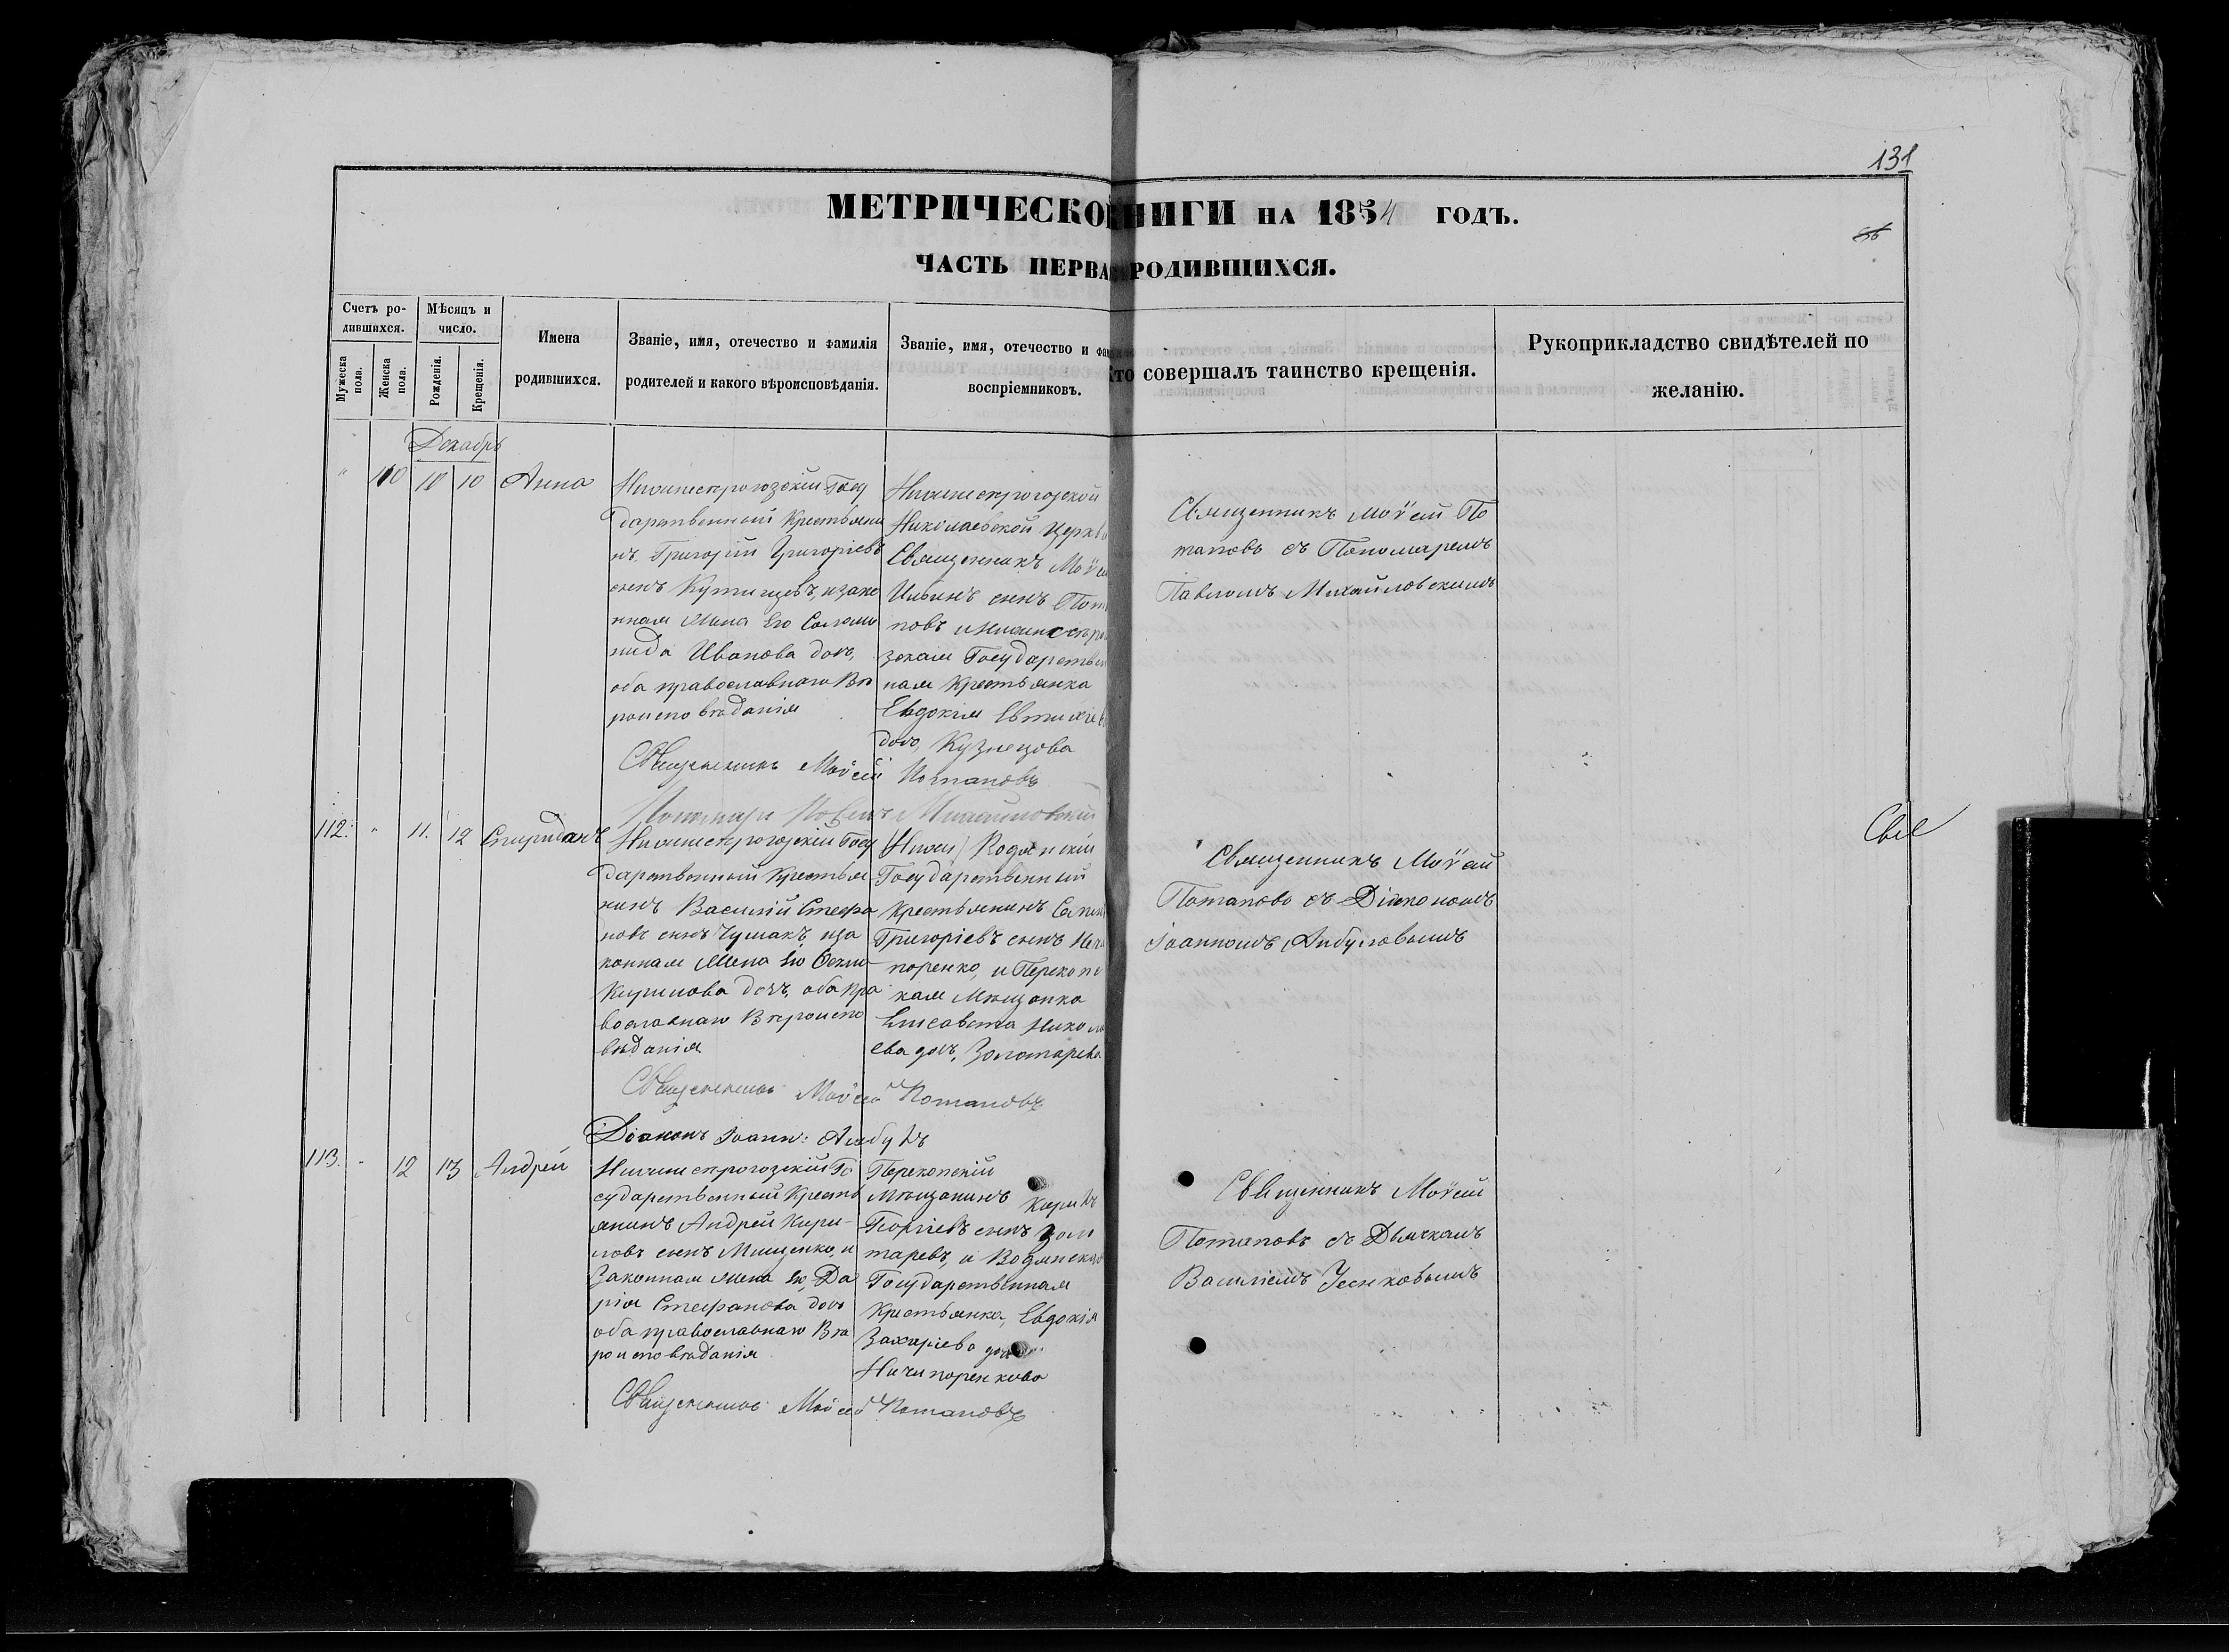 131
МЕТРИЧЕСКОЙ КНИГИ НА 1854 ГОДЪ.
86
ЧАСТЬ ПЕРВАЯ РОДИВШИХСЯ.
Счетъ ро-
дившихся.
Мужеска пола.
Женска пола.
Мѣсяцъ и
число.
Рожденія.
Крещенія.
Имена
родившихся.
Званіе, имя, отечество и фамилія
родителей и какого вѣроисповѣданія.
Званіе, имя, отечество и фа
воспріемниковъ.
Кто совершалъ таинство крещенія.
Рукоприкладство свидѣтелей по
желанію.
Декабрь
" 110 10 10 Анна
Нижнесѣрогозскій Госу
дарственный Крестьяни
нъ Григорій Григоріевъ
сынъ Кутищевъ, и зако
нная жена его Соломо
нида Иванова доч,
оба православнаго Вѣ
роисповѣданія
Нижнесѣрогозской
Николаевской Церкви
Священникъ Моѵсей
Ильинъ сынъ Пота
повъ и Нижнесѣро
зская Государствен
ная Крестьянка
Евдокія Евтихіева
доч, Кузнецова
Священникъ Моѵсей По
таповъ съ Пономаремъ
Павломъ Михайловскимъ
Священникъ Моѵсей Потаповъ
Пономарь Павелъ Михайловскій
112. " 11. 12 Спиридонъ
Нижнесѣрогозскій Госу
дарственный Крестья
нинъ Василій Стефа
новъ сынъ Чумакъ, и за
конная жена его Оекла
Кирилова дочъ, оба пра
вославнаго Вѣроиспо
вѣданія
(Нижн) Водянскій
Государственный
Крестьянинъ
Григоріевъ сынъ Ничи
поренко, и Перекопс
кая Мѣщанка
Елисавета Никола
ева доч, Золотарева
Священникъ Моѵсей
Потаповъ съ Діакономъ
Іоанномъ Анбуловымъ
Свел
Священникъ Моѵсей Потаповъ
Діаконъ Іоаннъ:
113. " 12 13 Андрей
Нижнесѣрогозскій Го
сударственный Кресть
янинъ Андрей Кири-
ловъ сынъ Мищенко, и
Законная жена его, Да
рія Стефанова доч
оба православнаго Вѣ
роисповѣданія
Перекопскій
Мѣщанинъ Кирилъ
Георгіевъ сынъ Золо
таревъ, и Водянская
Государственная
Крестьянка, Евдокія
Захаріева доч
Ничипоренкова
Священникъ Моѵсей
Потаповъ съ Дьячкомъ
Василіемъ
Священникъ Моѵсей Потаповъ